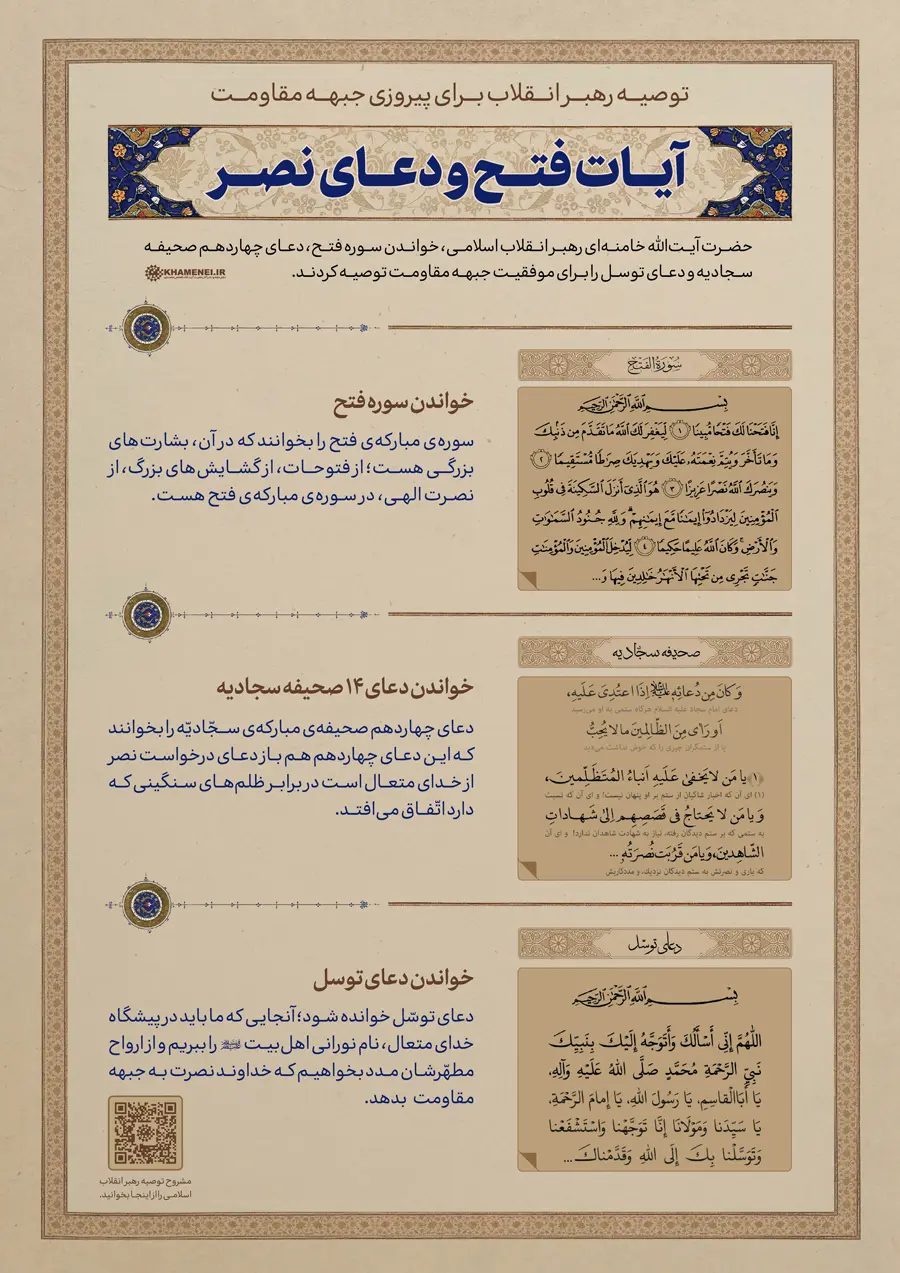 توصیه رهبر انقلاب برای پیروزی جبهه مقاومت
آیات فتح و دعای نصر
حضرت آیت‌الله خامنه‌ای رهبر انقلاب اسلامی، خواندن سوره فتح، دعای چهاردهم صحیفه
سجادیه و دعای توسل را برای موفقیت جبهه مقاومت توصیه کردند.
KHAMENEI.IR
سُورَةُ الفَتْحِ
بِسْمِ اللَّهِ الرَّحْمَٰنِ الرَّحِيمِ
إِنَّا فَتَحْنَا لَكَ فَتْحًا مُّبِينًا ﴿١﴾ لِّيَغْفِرَ لَكَ اللَّهُ مَا تَقَدَّمَ مِن ذَنۢبِكَ
وَمَا تَأَخَّرَ وَيُتِمَّ نِعْمَتَهُۥ عَلَيْكَ وَيَهْدِيَكَ صِرَٰطًا مُّسْتَقِيمًا ﴿٢﴾
وَيَنصُرَكَ اللَّهُ نَصْرًا عَزِيزًا ﴿٣﴾ هُوَ الَّذِي أَنزَلَ السَّكِينَةَ فِي قُلُوبِ
الْمُؤْمِنِينَ لِيَزْدَادُوٓا إِيمَٰنًا مَّعَ إِيمَٰنِهِمْ ۗ وَلِلَّهِ جُنُودُ السَّمَٰوَٰتِ
وَالْأَرْضِ ۚ وَكَانَ اللَّهُ عَلِيمًا حَكِيمًا ﴿٤﴾ لِّيُدْخِلَ الْمُؤْمِنِينَ وَالْمُؤْمِنَٰتِ
جَنَّٰتٍ تَجْرِي مِن تَحْتِهَا الْأَنْهَٰرُ خَٰلِدِينَ فِيهَا وَ...
خواندن سوره فتح
سوره‌ی مبارکه‌ی فتح را بخوانند که در آن، بشارت‌های
بزرگی هست؛ از فتوحات، از گشایش‌های بزرگ، از
نصرت الهی، در سوره‌ی مبارکه‌ی فتح هست.
صحیفه سجادیه
وَ کَانَ مِن دُعائِهِ إِذَا اعتُدِیَ عَلَیهِ،
دعای امام سجاد علیه السلام هرگاه ستمی به او می‌رسید
أَو رَأی مِنَ الظّالِمینَ ما لا یُحِبُّ
یا از ستمگران چیزی را که خوش نداشت می‌دید
(۱) یا مَن لا یَخفیٰ عَلَیهِ أَنباءُ المُتَظَلِّمینَ،
(۱) ای آن که اخبار شاکیانِ از ستم بر او پنهان نیست! و ای آن که نسبت
وَ یا مَن لا یَحتاجُ فی قَصَصِهِم إِلیٰ شَهاداتِ
به ستمی که بر ستم دیدگان رفته، نیاز به شهادت شاهدان ندارد! و ای آن
الشّاهِدینَ، وَ یا مَن قَرُبَت نُصرَتُهُ ...
که یاری و نصرتش به ستم دیدگان نزدیک، و مددکاریش
خواندن دعای ۱۴ صحیفه سجادیه
دعای چهاردهم صحیفه‌ی مبارکه‌ی سجّادیّه را بخوانند
که این دعای چهاردهم هم باز دعای درخواست نصر
از خدای متعال است در برابر ظلم‌های سنگینی که
دارد اتّفاق می‌افتد.
دعای توسل
بِسْمِ اللَّهِ الرَّحْمَٰنِ الرَّحِيمِ
اللّٰهُمَّ إِنّي أَسْأَلُكَ وَأَتَوَجَّهُ إِلَيْكَ بِنَبِيِّكَ
نَبِيِّ الرَّحْمَةِ مُحَمَّدٍ صَلَّى اللهُ عَلَيْهِ وَآلِهِ،
يَا أَبَا الْقَاسِمِ، يَا رَسُولَ اللهِ، يَا إِمَامَ الرَّحْمَةِ،
يَا سَيِّدَنَا وَمَوْلَانَا إِنَّا تَوَجَّهْنَا وَاسْتَشْفَعْنَا
وَتَوَسَّلْنَا بِكَ إِلَى اللهِ وَقَدَّمْنَاكَ ...
خواندن دعای توسل
دعای توسّل خوانده شود؛ آنجایی که ما باید در پیشگاه
خدای متعال، نام نورانی اهل بیت را ببریم و از ارواح
مطهّرشان مدد بخواهیم که خداوند نصرت به جبهه
مقاومت بدهد.
مشروح توصیه رهبر انقلاب
اسلامی را از اینجا بخوانید.